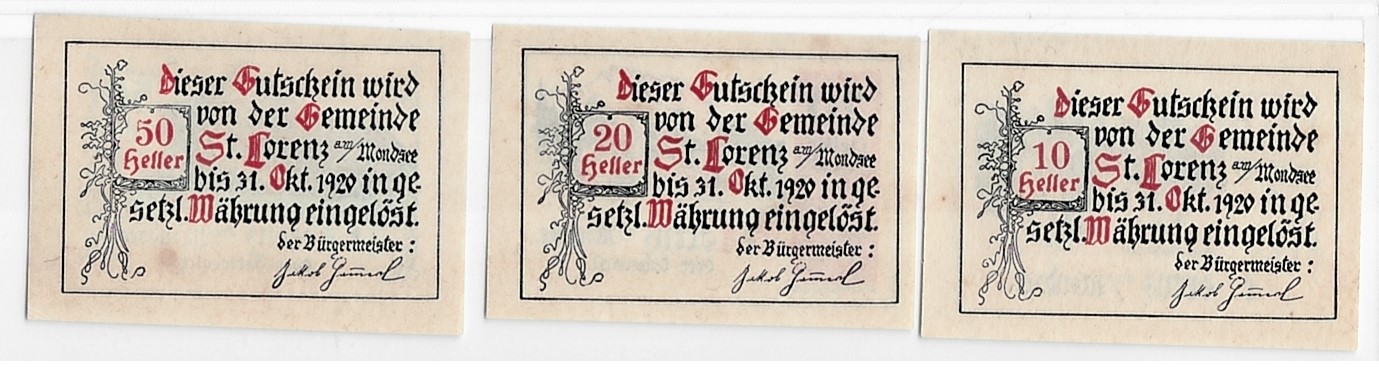 dieser Gutschein wird
von der Gemeinde
50 Heller
St. Lorenz a/m Mondsee
bis 31. Okt. 1920 in ge-
setzl. Währung eingelöst.
der Bürgermeister :
Jakob
dieser Gutschein wird
von der Gemeinde
20 Heller
St. Lorenz a/m Mondsee
bis 31. Okt. 1920 in ge-
setzl. Währung eingelöst.
der Bürgermeister :
Jakob
dieser Gutschein wird
von der Gemeinde
10 Heller
St. Lorenz a/m Mondsee
bis 31. Okt. 1920 in ge-
setzl. Währung eingelöst.
der Bürgermeister :
Jakob